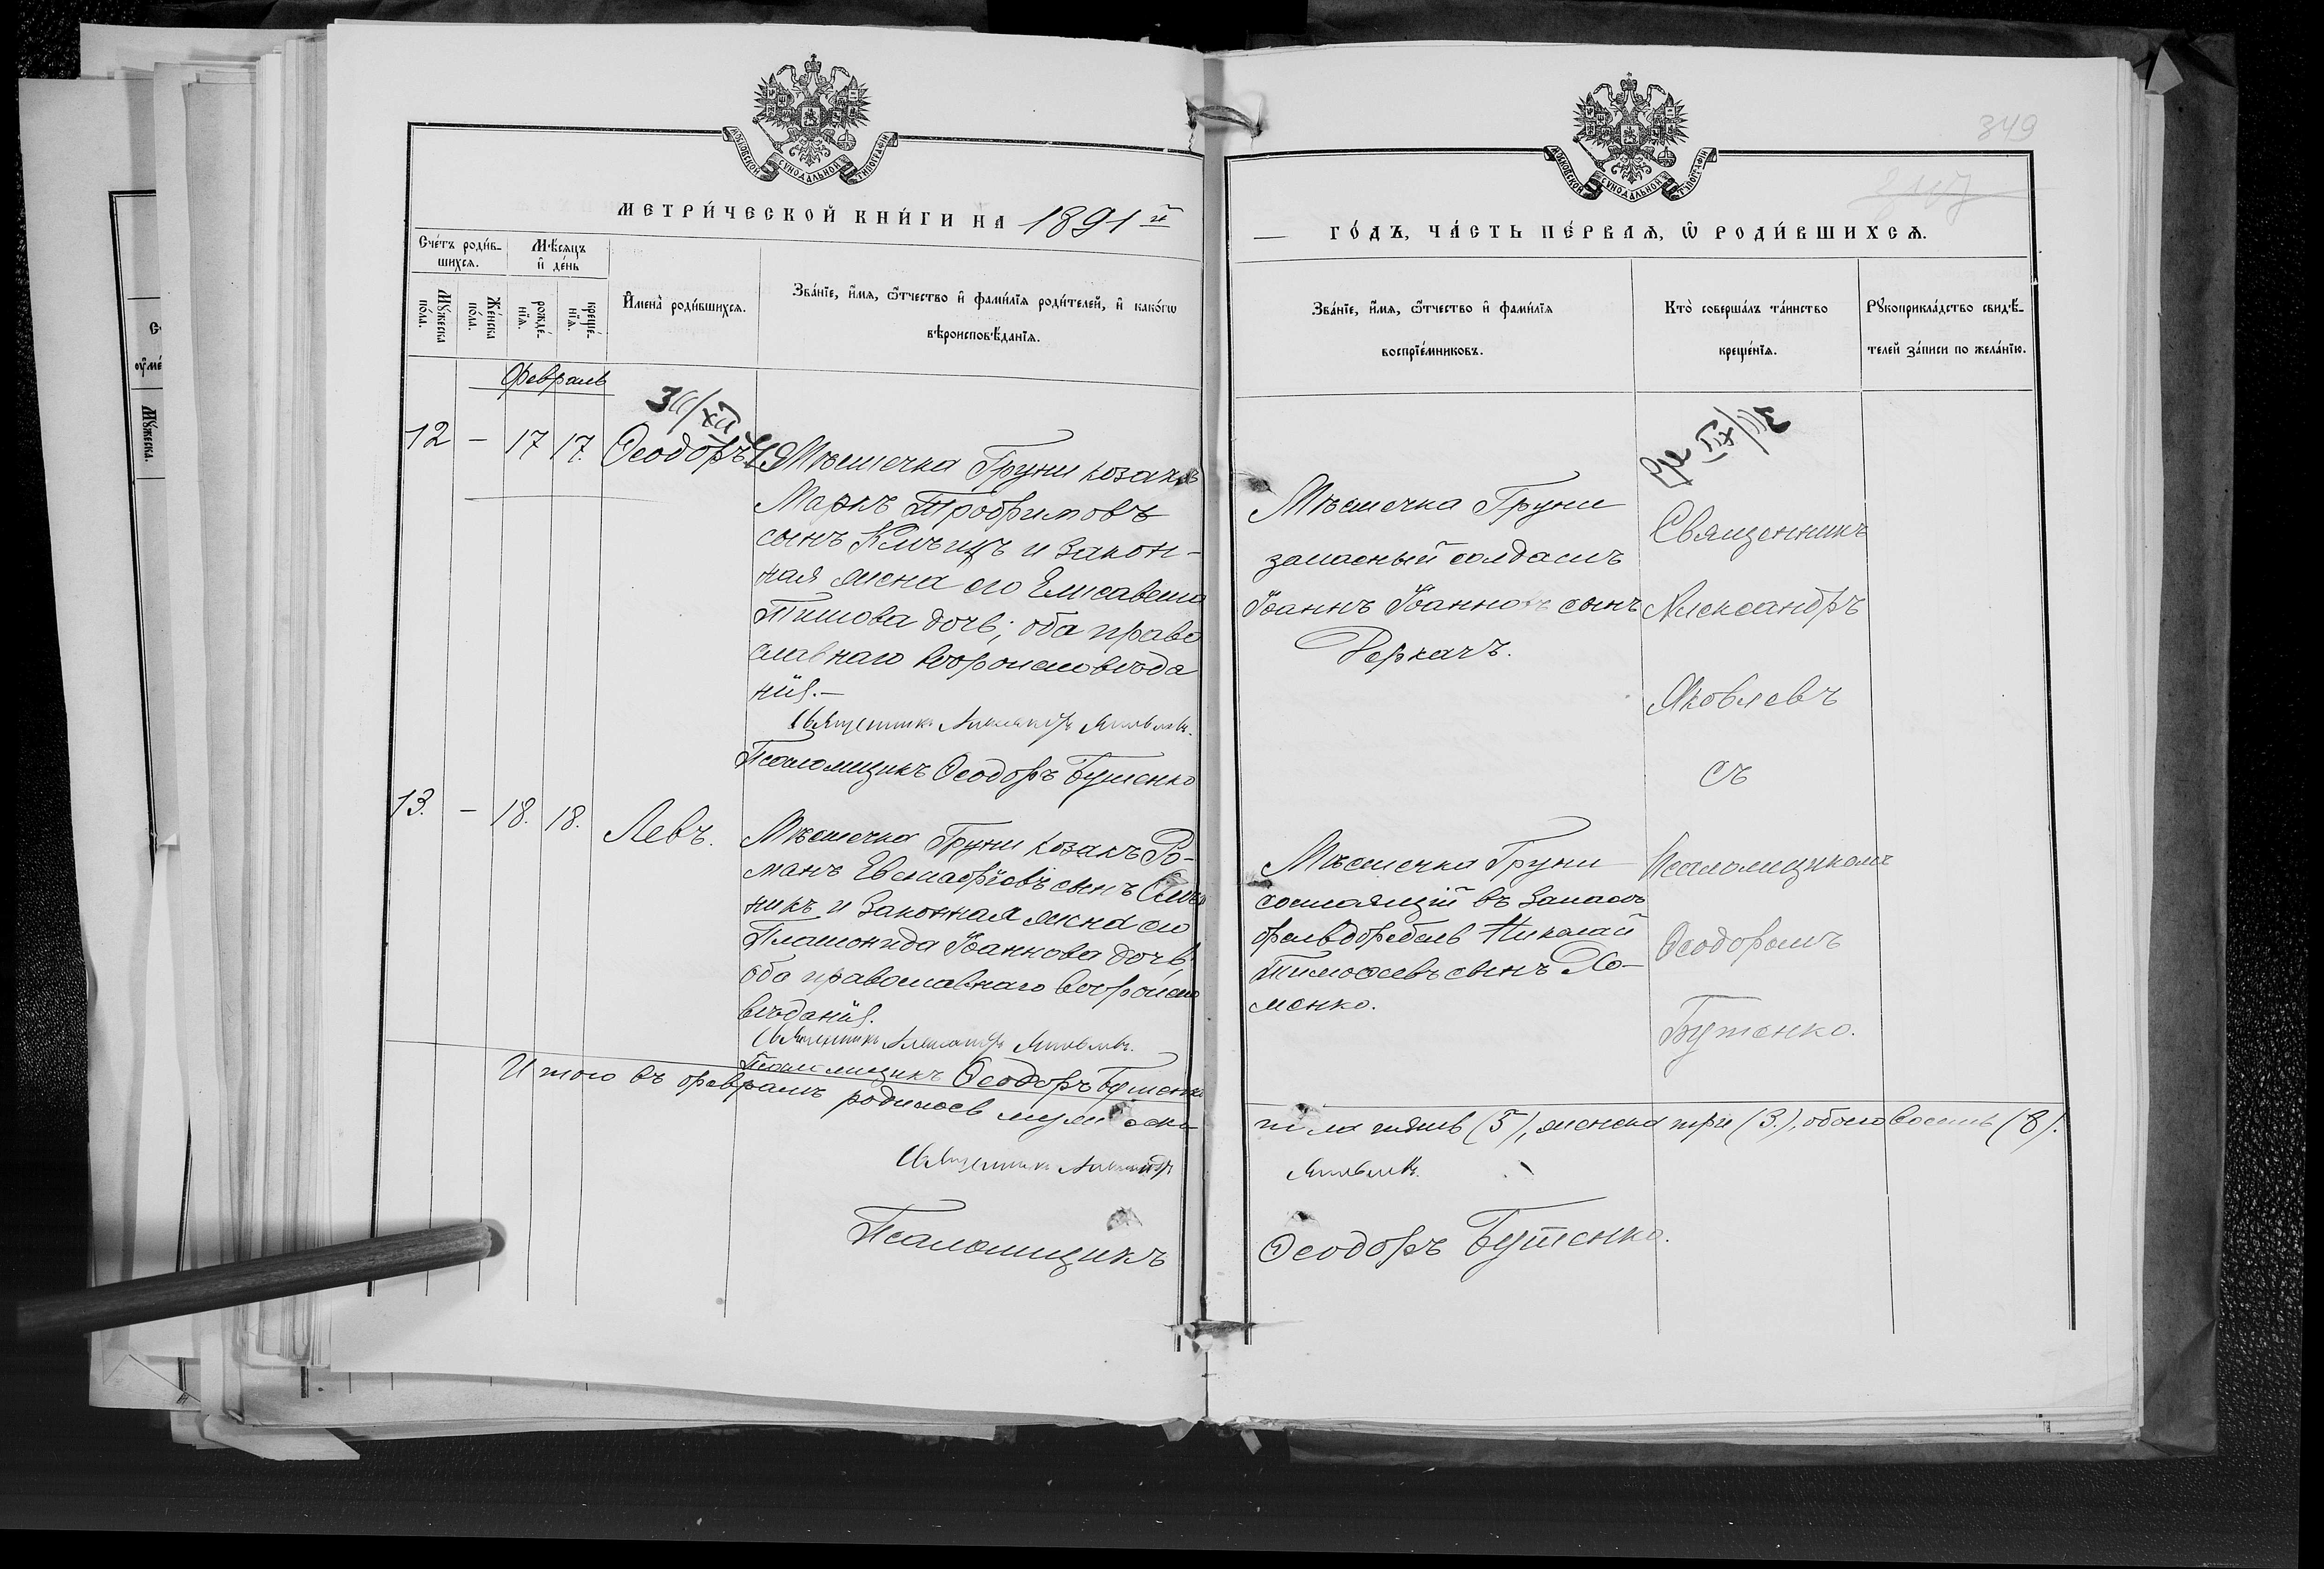 МОСКОВСКОЙ СУНОДАЛЬНОЙ ТИПОГРАФІИ
МЕТРИ́ЧЕСКОЙ КНИ́ГИ НА 1891 й
Счéтъ роди́в-
шихсѧ.
Мѣ́сѧцъ
и҆ де́нь
Мꙋ́жеска
по́ла.
Же́нска
по́ла.
рожде́-
нїѧ.
креще́-
нїѧ.
И҆мена̀ роди́вшихсѧ.
Зва́нїе, и҆́мѧ, ѻ҆́тчество и҆ фами́лїѧ роди́телей, и҆ како́гѡ
вѣроисповѣ́данїѧ.
Февраль
12 — 17 17. Ѳеодоръ
Мѣстечка Груни козакъ
Маркъ Трофимовъ
сынъ и закон-
ная жена его Елисавета
Титова дочь; оба право
славнаго вѣроисповѣда
нія.—
Священникъ Александръ Яковлевъ.
Псаломщикъ Ѳеодоръ Бутенко
13. — 18. 18. Левъ.
Мѣстечка Груни козакъ Ро-
манъ Евстафіевъ сынъ
никъ и законная жена его
Платонида Іоаннова дочь
оба православнаго вѣроиспо
вѣданія.
Священникъ Александръ Яковлевъ.
Псаломщикъ Ѳеодоръ Бутенко
Итого въ февралѣ родилось мужеска
Священникъ Александръ
Псаломщикъ
349
МОСКОВСКОЙ СУНОДАЛЬНОЙ ТИПОГРАФІИ
— ГО́ДЪ, ЧА́СТЬ ПЕ́РВАѦ, Ѽ РОДИ́ВШИХСѦ.
Зва́нїе, и҆́мѧ, ѻ҆́тчество и҆ фами́лїѧ
воспрїе́мниковъ.
Кто̀ соверша́лъ та́инство
креще́нїѧ.
Рꙋкоприкла́дство свидѣ́-
телей за́писи по жела́нїю.
Мѣстечка Груни
запасный солдатъ
Іоаннъ Іоанновъ сынъ
Деркачъ.
Священникъ
Александръ
Яковлевъ
съ
Псаломщикомъ
Ѳеодоромъ
Бутенко.
Мѣстечка Груни
состоящій въ запасѣ
фельдфебель Николай
Тимоѳеевъ сынъ Хо-
менко.
пола пять (5), женска три (3.), обоего восемь (8).
Яковлевъ.
Ѳеодоръ Бутенко.